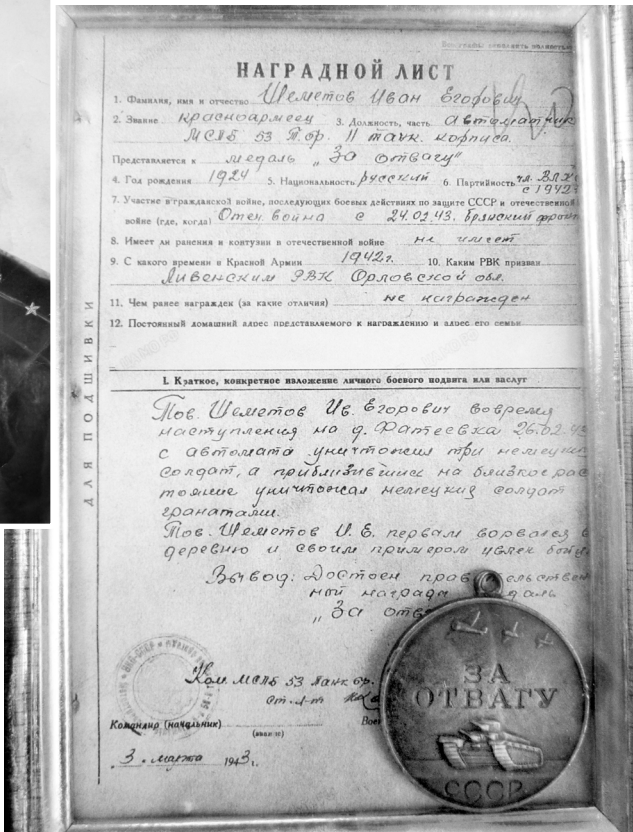 Заполнять полностью
НАГРАДНОЙ ЛИСТ
1. Фамилия, имя и отчество Шеметов Иван Егорович
2. Звание красноармеец 3. Должность, часть автоматчик
МСПБ 53 Т.бр. 11 танк. корпуса.
Представляется к медаль „За отвагу"
4. Год рождения 1924 5. Национальность русский 6. Партийность чл. ВЛК
с 1942
7. Участие в гражданской войне, последующих боевых действиях по защите СССР и отечественной
войне (где, когда) Отеч. война с 24.02.43. Брянский фронт
8. Имеет ли ранения и контузии в отечественной войне не имеет
9. С какого времени в Красной Армии 1942 г. 10. Каким РВК призван
Ливенским РВК Орловской обл.
11. Чем ранее награжден (за какие отличия) не награжден
12. Постоянный домашний адрес представляемого к награждению и адрес его семьи
ДЛЯ ПОДШИВКИ
I. Краткое, конкретное изложение личного боевого подвига или заслуг
Тов. Шеметов Ив. Егорович вовремя
наступления на д. Фатеевка 26.02.43
с автомата уничтожил три немецких
солдат, а приблизившись на близкое рас
тояние уничтожал немецких солдат
гранатами.
Тов. Шеметов И. Е. первым ворвался в
деревню и своим примером увлек бой
Вывод: Достоен прав тельствен
ной награды даль
„За отв
Ком. МСПБ 53 танк бр.
ст. л-т
Командир (начальник) Вое
(звание)
3. марта 1943 г.
ЗА
ОТВАГУ
СССР